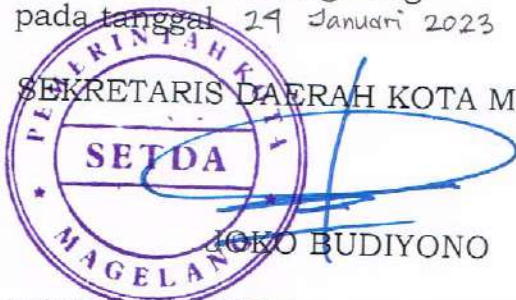 pada tanggal 24 Januari 2023
SEKRETARIS DAERAH KOTA M
PEMERINTAH KOTA
SETDA
MAGELANG
JOKO BUDIYONO